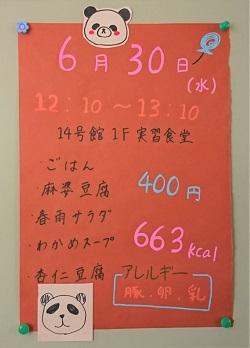 6月30日
(水)
12:10～13:10
14号館 1F 実習食堂
・ごはん
・麻婆豆腐
400円
・春雨サラダ
・わかめスープ
663kcal
・杏仁豆腐
アレルギー
豚・卵・乳